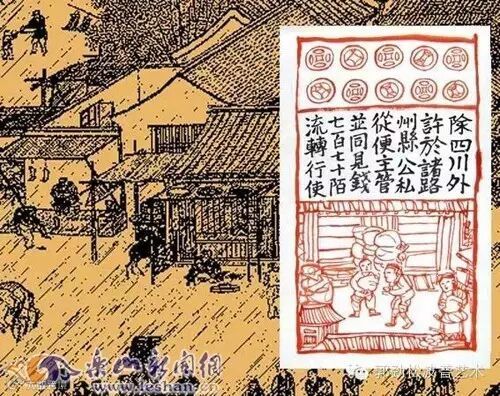 除四川外
許於諸路
州縣公私
從便主管
並同見錢
七百七十陌
流轉行使
乐山新闻网
www.leshan.cn